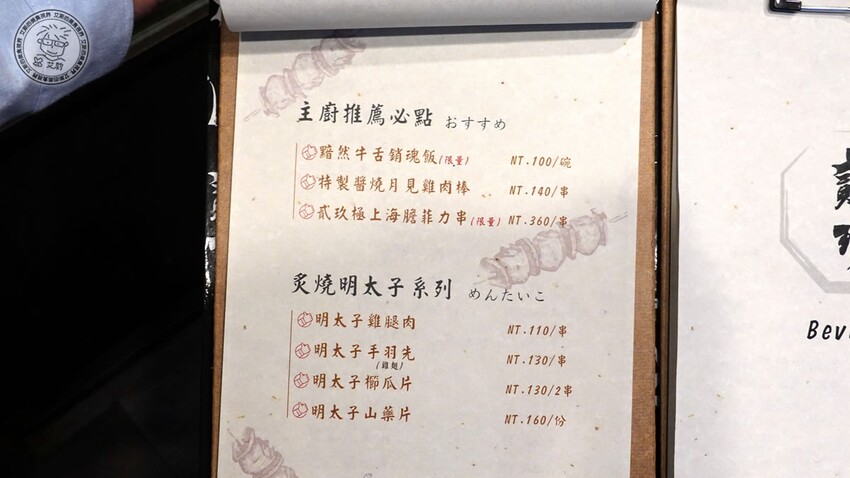 艾廚
主廚推薦必點 おすすめ
黯然牛舌銷魂飯(限量) NT.100/碗
特製醬燒月見雞肉棒 NT.140/串
貳玖極上海膽菲力串(限量) NT.360/串
炙燒明太子系列 めんたいこ
明太子雞腿肉 NT.110/串
明太子手羽先 NT.130/串
(雞翅)
明太子櫛瓜片 NT.130/2串
明太子山藥片 NT.160/份